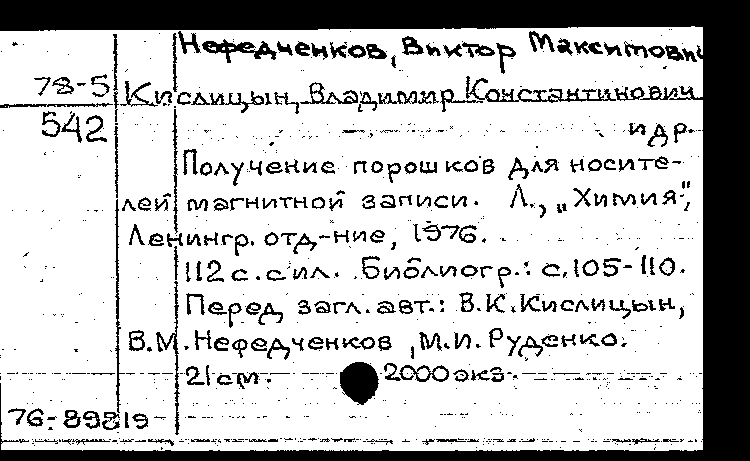 Нефедченков, Виктор Максимович
78-5 Кислицын, Владимир Константинович
542 и др.
Получение порошков для носите-
лей магнитной записи. Л., „Химия",
Ленингр. отд-ние, 1976.
112 с. с ил. Библиогр.: с. 105-110.
Перед загл. авт.: В.К. Кислицын,
В.М. Нефедченков, М.И. Руденко.
21 см. 2000 экз.
76-89819